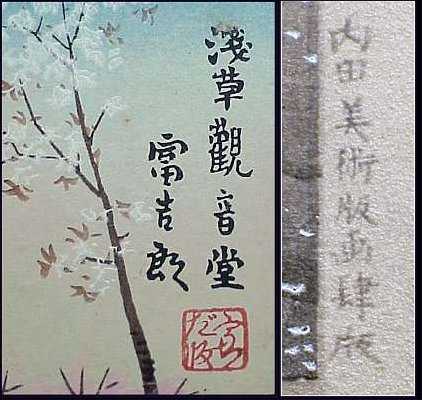 淺草觀音堂
富吉郎
内田美術版画肆版